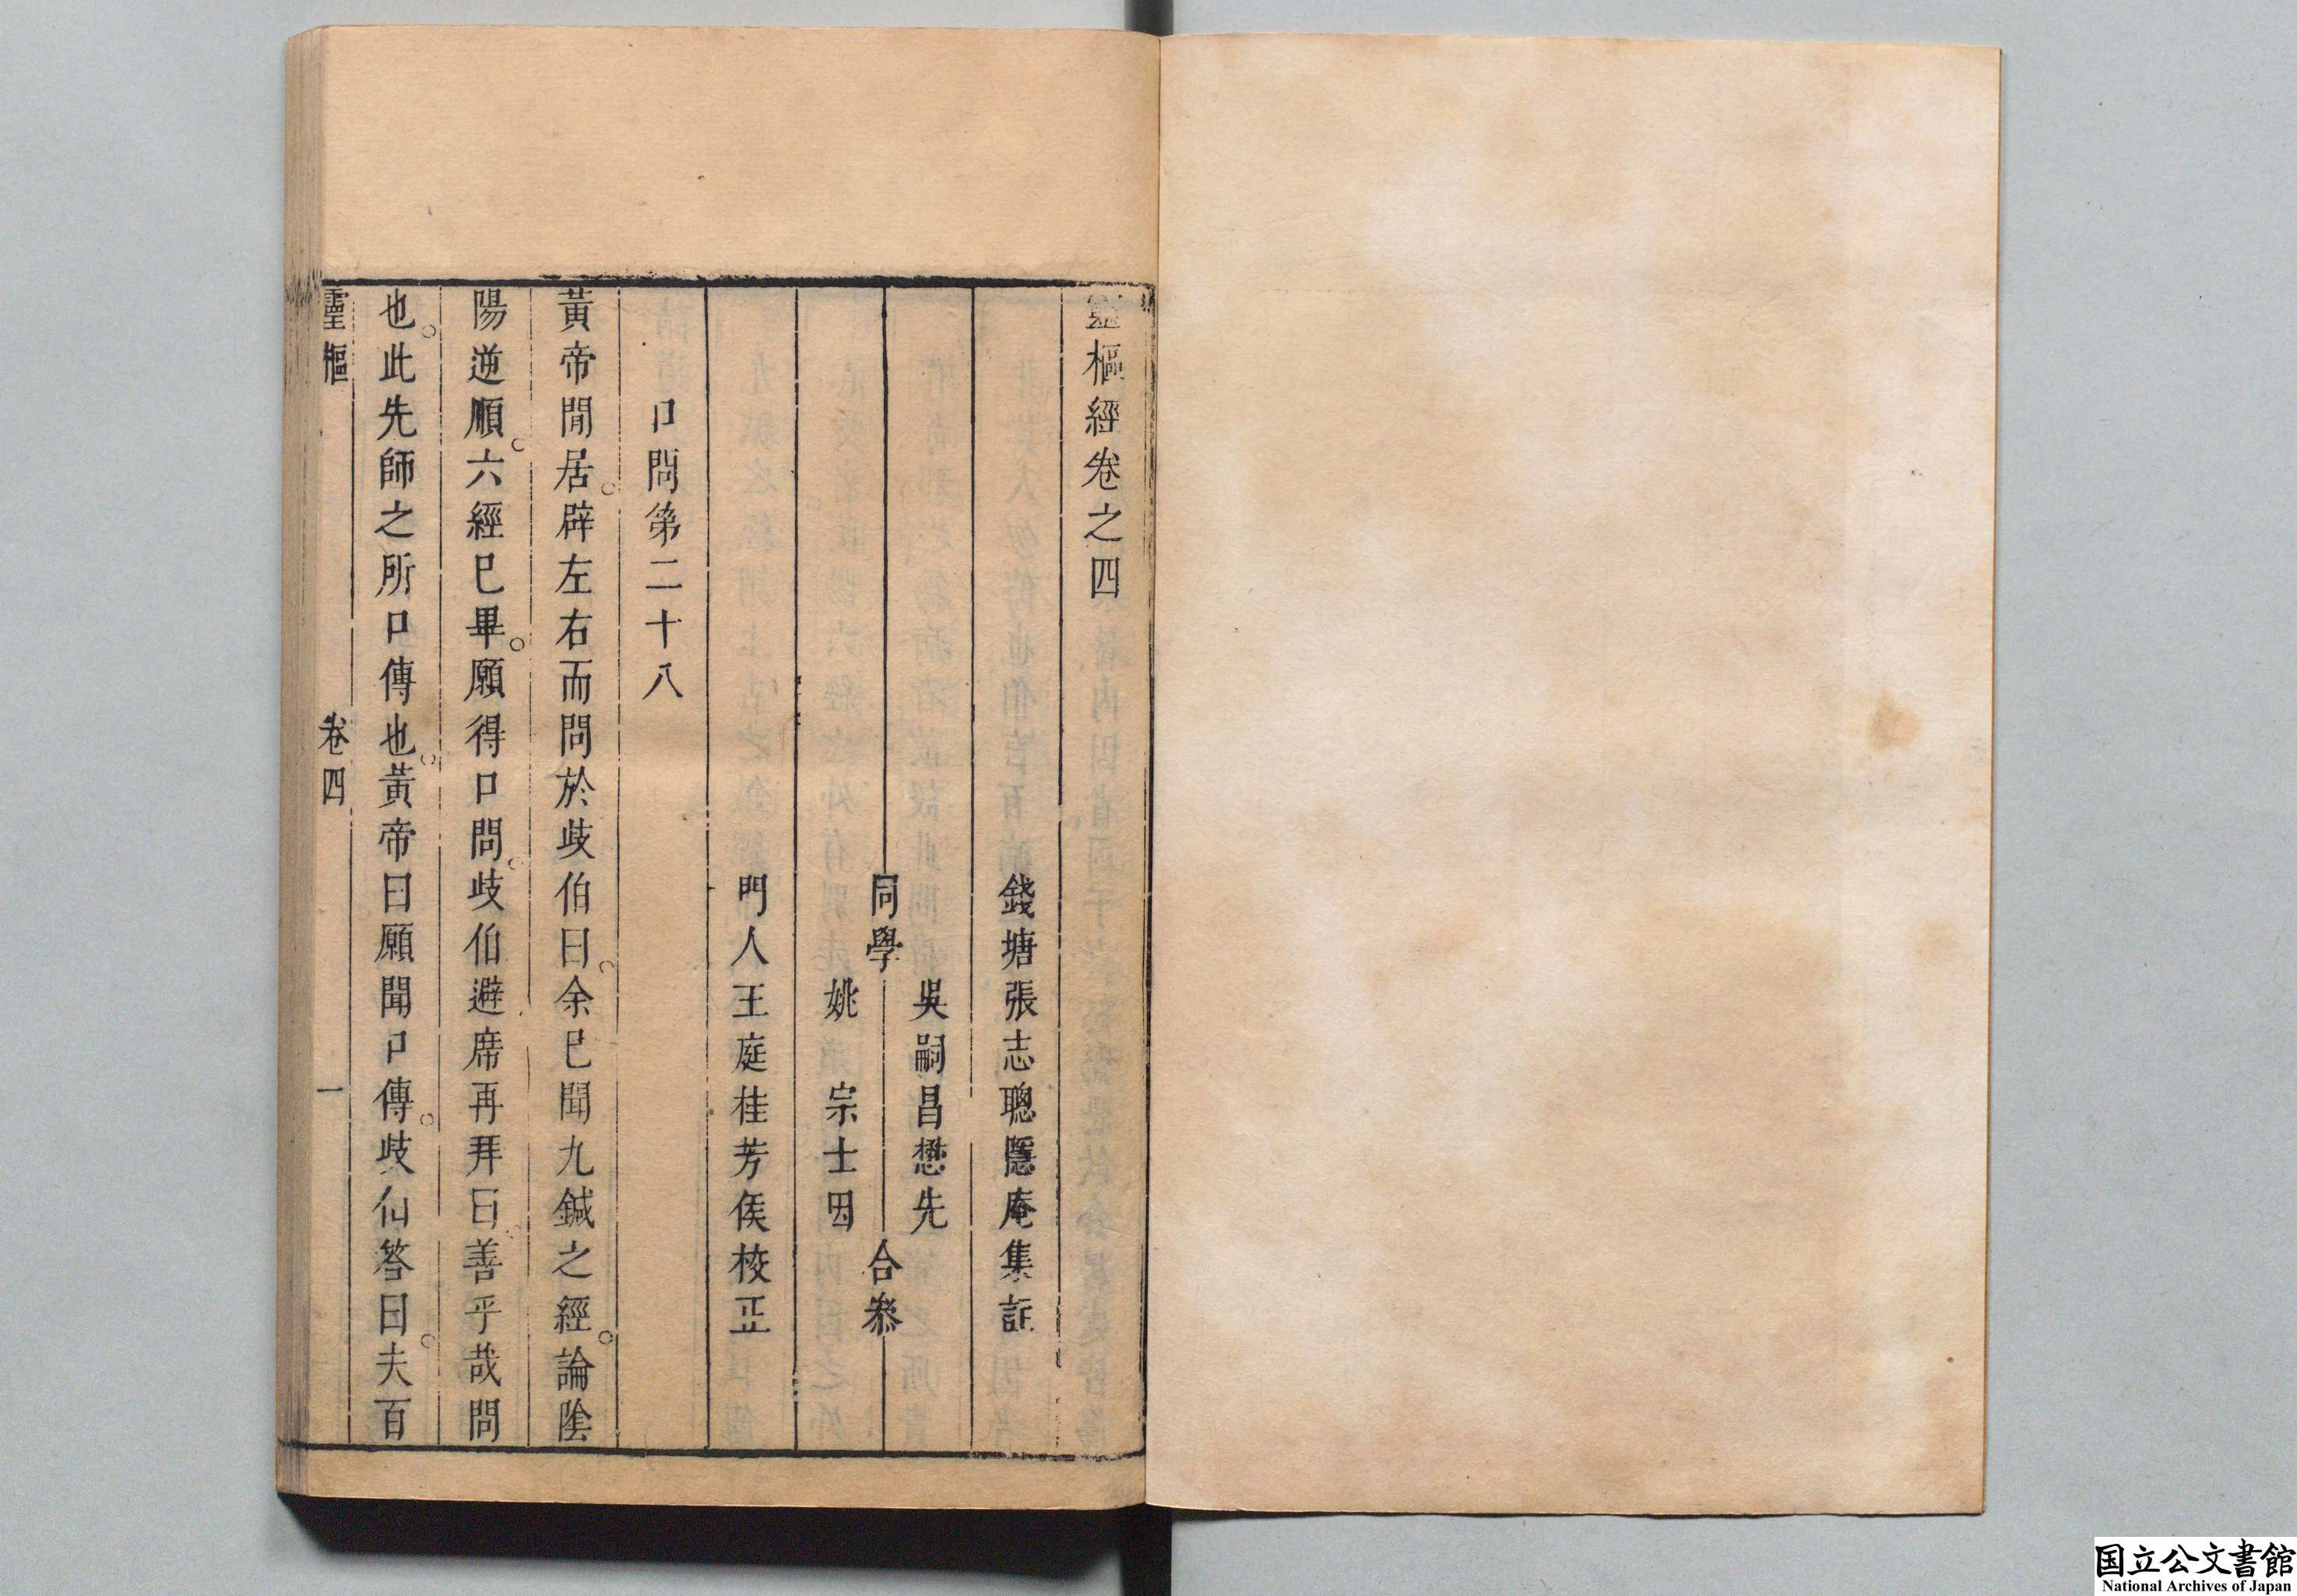 靈樞經卷之四
錢塘張志聰隱庵集註
同學
吳嗣昌懋先
姚宗士因
合叅
門人王庭桂芳侯校正
口問第二十八
黃帝閒居。辟左右而問於歧伯曰。余已聞九鍼之經。論陰
陽逆順。六經已畢。願得口問。歧伯避席再拜曰。善乎哉問
也。此先師之所口傳也。黃帝曰願聞口傳。歧伯答曰。夫百
靈樞 卷四 一
国立公文書館
National Archives of Japan